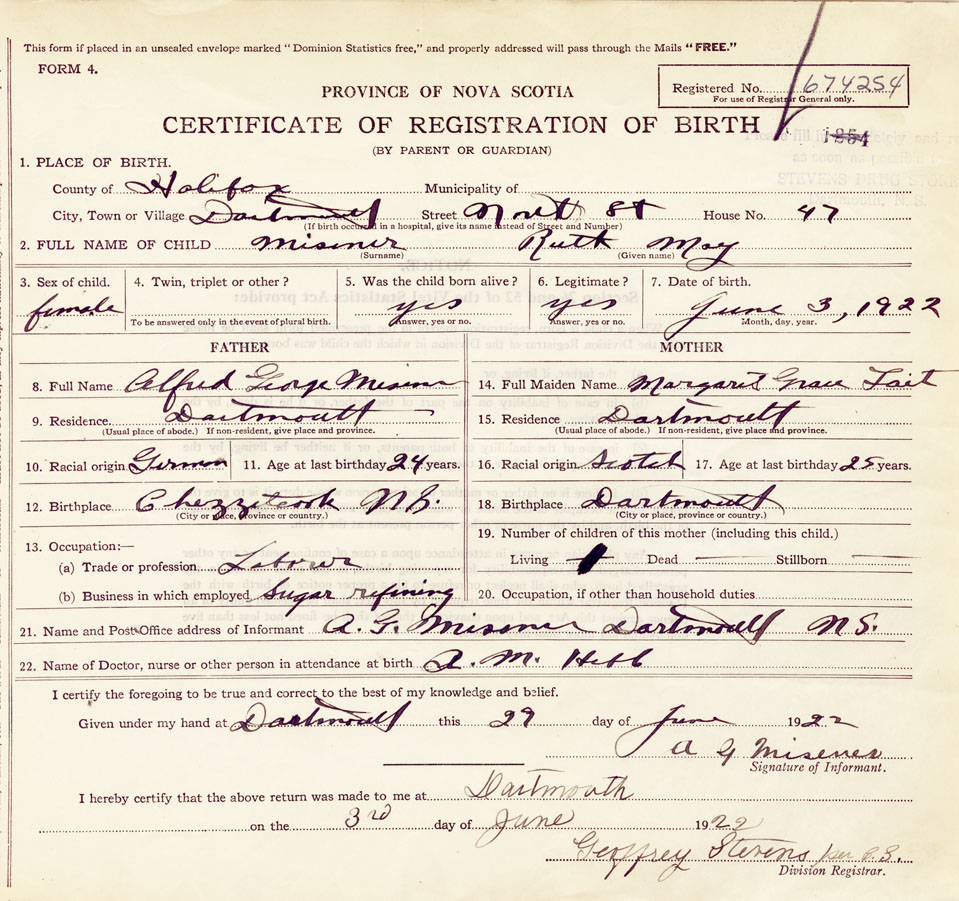 This form if placed in an unsealed envelope marked "Dominion Statistics free," and properly addressed will pass through the Mails "FREE."
FORM 4.
Registered No. 674254
For use of Registrar General only.
PROVINCE OF NOVA SCOTIA
CERTIFICATE OF REGISTRATION OF BIRTH
(BY PARENT OR GUARDIAN)
1. PLACE OF BIRTH.
County of Halifax Municipality of
City, Town or Village Dartmouth Street North St House No. 47
(If birth occured in a hospital, give its name instead of Street and Number)
2. FULL NAME OF CHILD Misener Ruth May
(Surname) (Given name)
3. Sex of child. 4. Twin, triplet or other? 5. Was the child born alive? 6. Legitimate? 7. Date of birth.
female yes yes June 3, 1922
To be answered only in the event of plural birth. Answer, yes or no. Answer, yes or no. Month, day, year.
FATHER MOTHER
8. Full Name Alfred George Misener 14. Full Maiden Name Margaret Grace Tait
9. Residence Dartmouth 15. Residence Dartmouth
(Usual place of abode.) If non-resident, give place and province. (Usual place of abode.) If non-resident, give place and province.
10. Racial origin German 11. Age at last birthday 24 years. 16. Racial origin Scotch 17. Age at last birthday 25 years.
12. Birthplace Chezzetcook N.S. 18. Birthplace Dartmouth
(City or place, province or country.) (City or place, province or country.)
13. Occupation:— 19. Number of children of this mother (including this child.)
(a) Trade or profession Laborer Living Dead Stillborn
(b) Business in which employed Sugar refining 20. Occupation, if other than household duties
21. Name and Post Office address of Informant A. G. Misener Dartmouth N.S.
22. Name of Doctor, nurse or other person in attendance at birth A. M. Hebb
I certify the foregoing to be true and correct to the best of my knowledge and belief.
Given under my hand at Dartmouth this 29 day of June 1922
A G Misener
Signature of Informant.
I hereby certify that the above return was made to me at Dartmouth
on the 3rd day of June 1922
Geoffrey Stevens
Division Registrar.